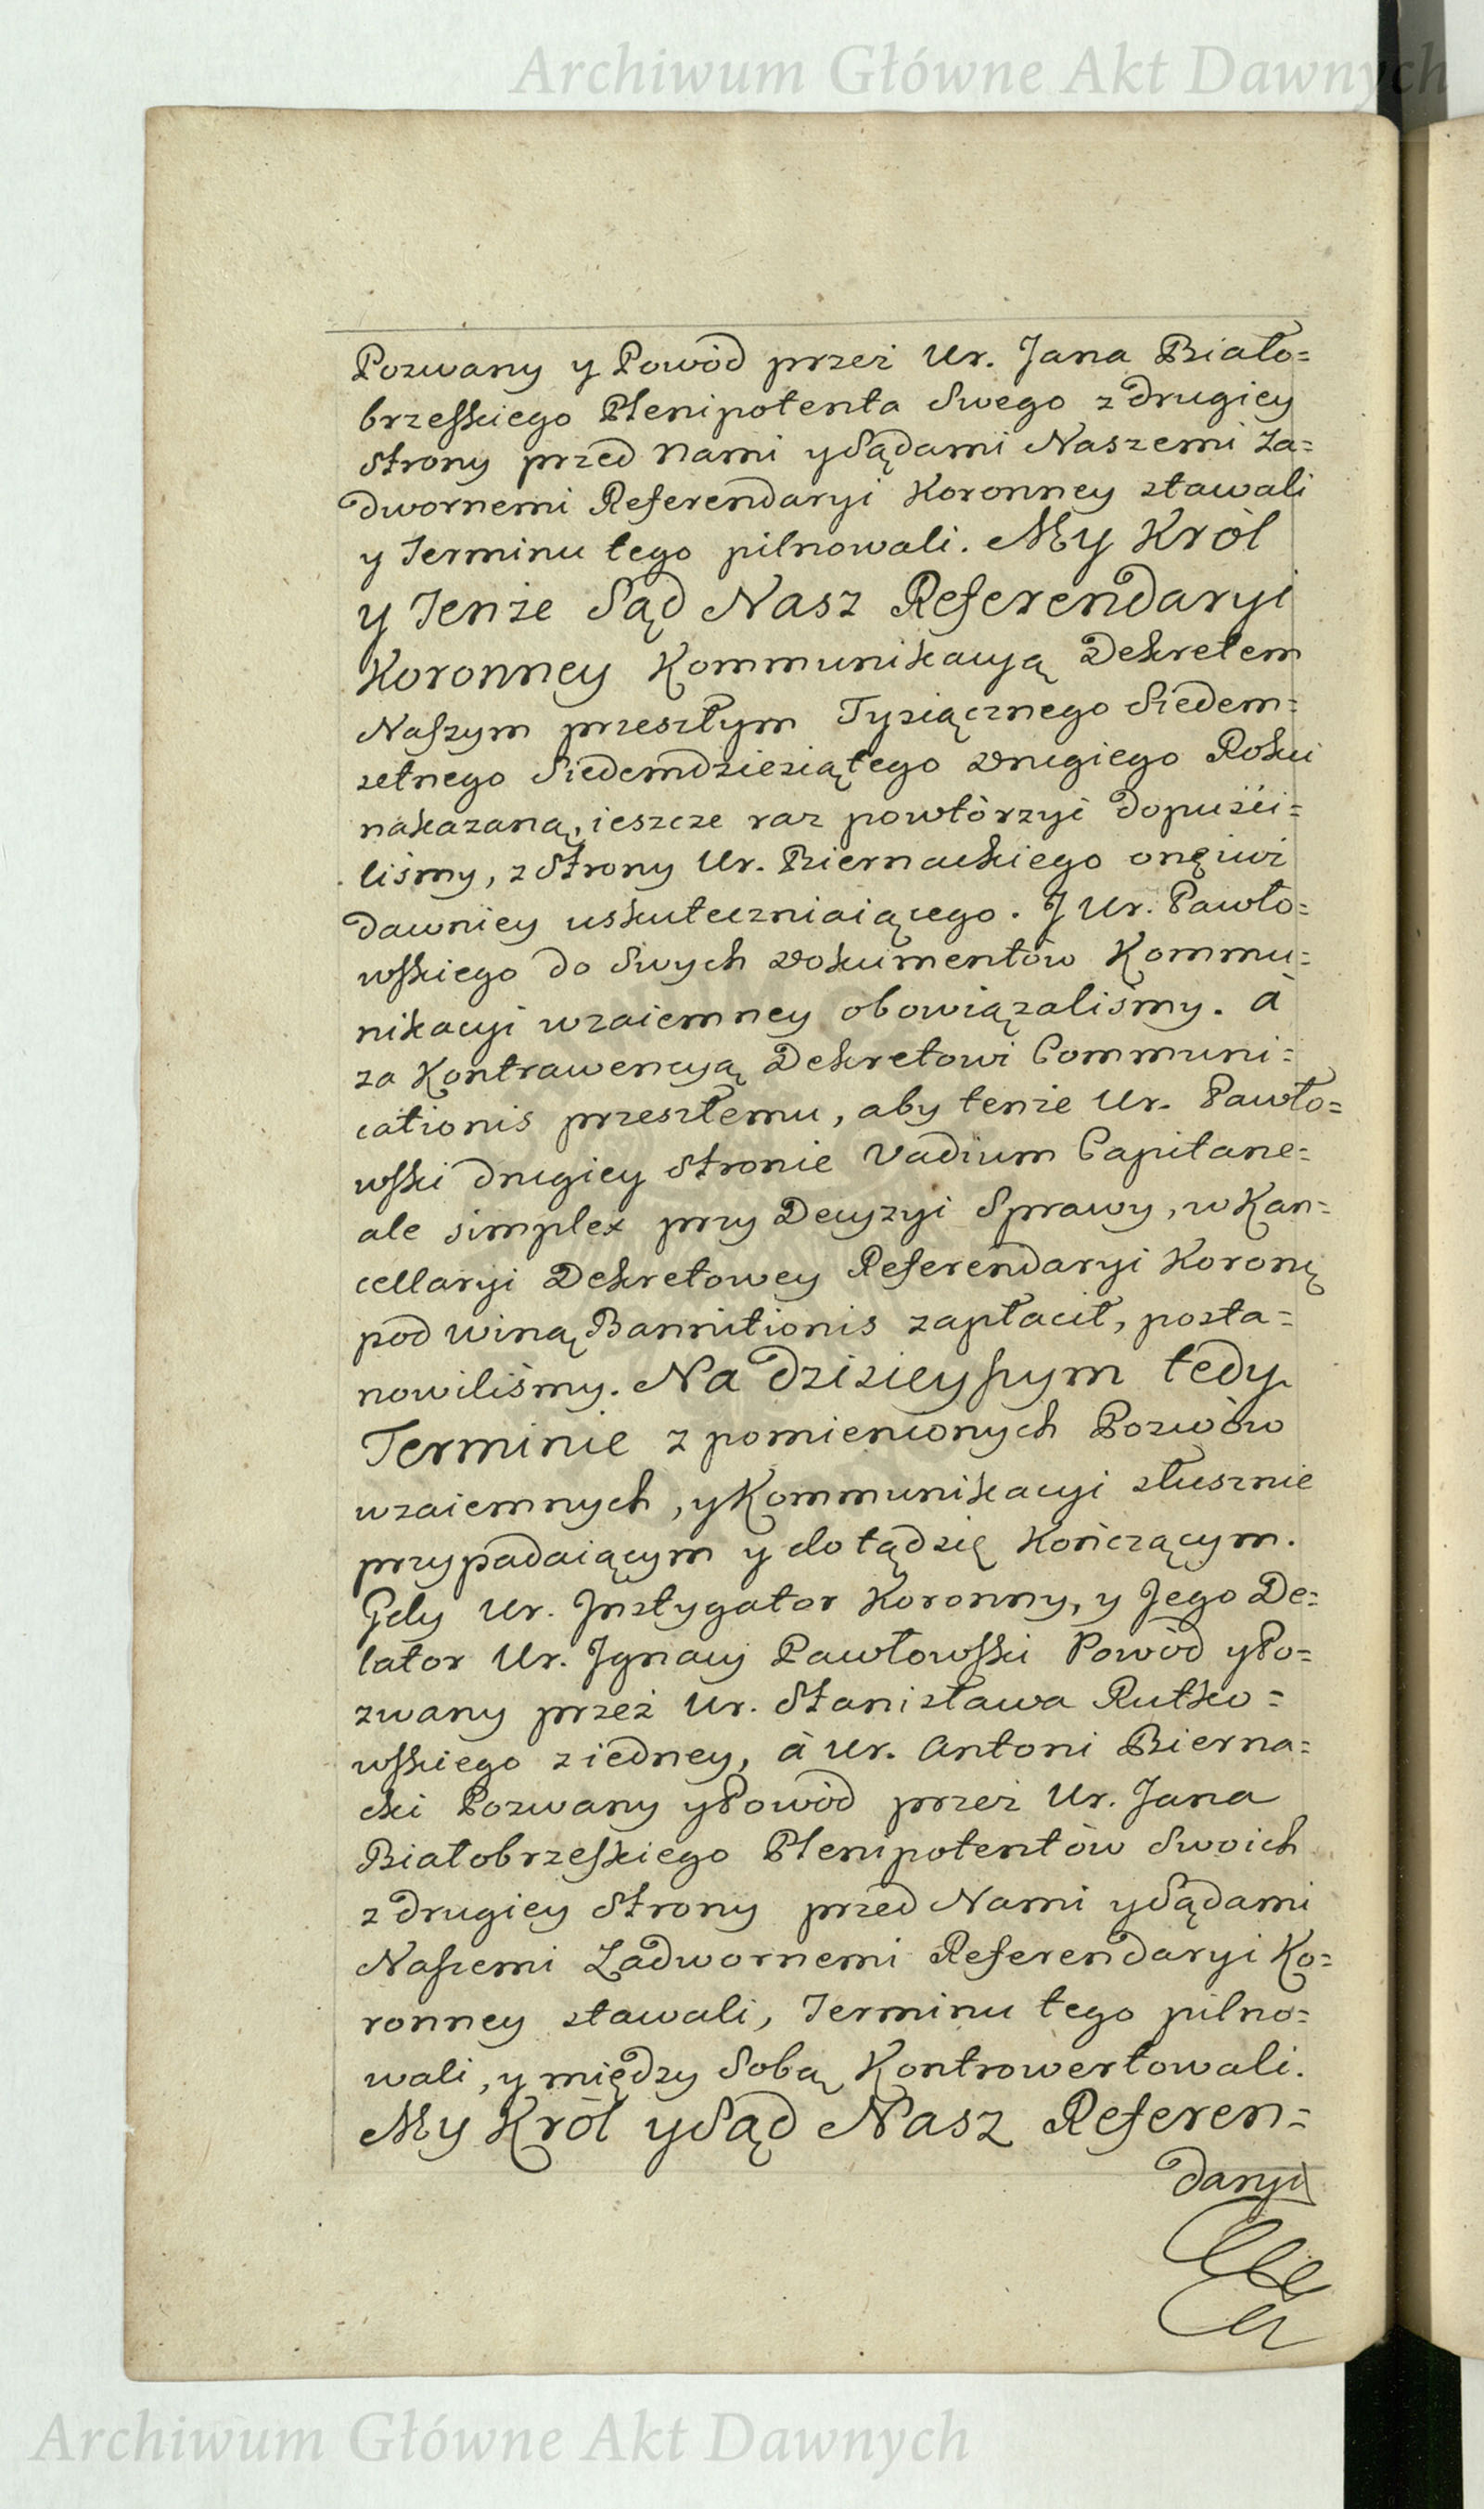 Archiwum Główne Akt Dawnych
Pozwany y Powòd przez Ur. Jana Biało=
brzeskiego Plenipotenta Swego z drugiey
Strony przed Nami y Sądami Naszemi Za=
dwornemi Referendaryi Koronney stawali
y Terminu tego pilnowali. My Kròl
y Tenże Sąd Nasz Referendaryi
Koronney Kommunikacyą Dekretem
Naszym przeszłym Tysiącznego Siedem=
setnego Siedemdziesiątego Drugiego Roku
nakazaną, ieszcze raz powtòrzyć dopuści=
liśmy, z Strony Ur. Biernackiego
dawniey uskuteczniaiącego. J Ur. Pawło=
wskiego do Swych Dokumentòw Kommu=
nikacyi wzaiemney obowiązaliśmy. à
za Kontrawencyą Dekretowi Communi=
cationis przeszłemu, aby tenże Ur. Pawło=
wski drugiey Stronie Vadium Capitane=
ale simplex przy Decyzyi Sprawy, w Kan=
cellaryi Dekretowey Referendaryi Koronę
pod winą Bannitionis zapłacił, posta=
nowiliśmy. Na dzisieyszym tedy
Terminie z pomienionych Pozwòw
wzaiemnych, y Kommunikacyi słusznie
przypadaiącym y dotąd się Kończącym.
Gdy Ur. Jnstygator Koronny, y Jego De=
lator Ur. Jgnacy Pawłowski Powòd y Po=
zwany przez Ur. Stanisława Rutko=
wskiego z iedney, à Ur. Antoni Bierna=
cki Pozwany y Powòd przez Ur. Jana
Białobrzeskiego Plenipotentòw Swoich
z drugiey Strony przed Nami y Sądami
Naszemi Zadwornemi Referendaryi Ko=
ronney stawali, Terminu tego pilno=
wali, y między Sobą Kontrowertowali.
My Kròl y Sąd Nasz Referen=
daryi
Archiwum Główne Akt Dawnych